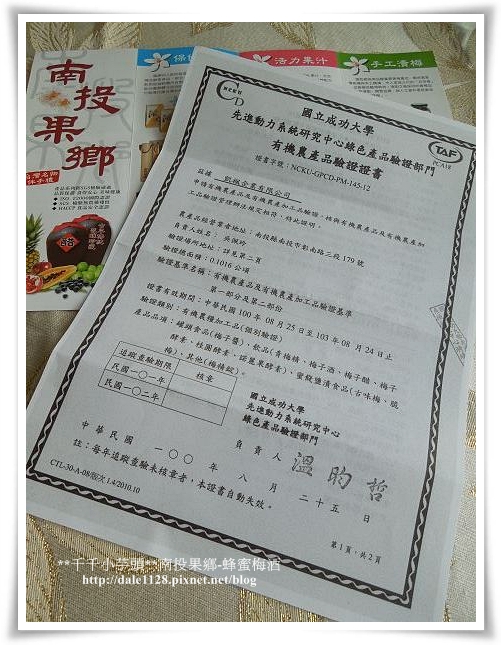 南投果鄉
活力果汁
手工漬梅
台灣名鄉
伴手禮
醋
NCKU
CPD
TAF
PCA18
國立成功大學
先進動力系統研究中心綠色產品驗證部門
有機農產品驗證證書
證書字號：NCKU-GPCD-PM-145-12
茲據 凱機企業有限公司
申請有機農產品及有機農產加工品驗證，核與有機農產品及有機農產加
工品驗證管理辦法規定相符，特此證明。
農產品經營業者地址：南投縣南投市彰南路三段179號
負責人姓名：吳佩玲
驗證場所地址：詳見第二頁
驗證總面積：0.1016公頃
驗證基準名稱：有機農產品及有機農產加工品驗證基準
第一部分及第二部份
證書有效期間：中華民國100年08月25日至103年08月24日止
驗證類別：有機農糧加工品(個別驗證)
產品品項：罐頭食品(梅子醬)、飲品(青梅精、梅子酒、梅子醋、梅子
酵素、桂圓酵素、諾麗果酵素)、蜜餞鹽漬食品(古味梅、脆
梅)、其他(梅精錠)。
追蹤查驗期限 核章
民國一〇一年
民國一〇二年
國立成功大學
先進動力系統研究中心
綠色產品驗證部門
負責人 溫昀哲
中華民國 一〇〇 年 八 月 二十五 日
註：每年追蹤查驗未核章者，本證書自動失效。
CTL-30-A-08/版次 1.4/2010.10
第1頁，共2頁
**千千小芋頭**南投果鄉-蜂蜜梅酒
http://dale1128.pixnet.net/blog